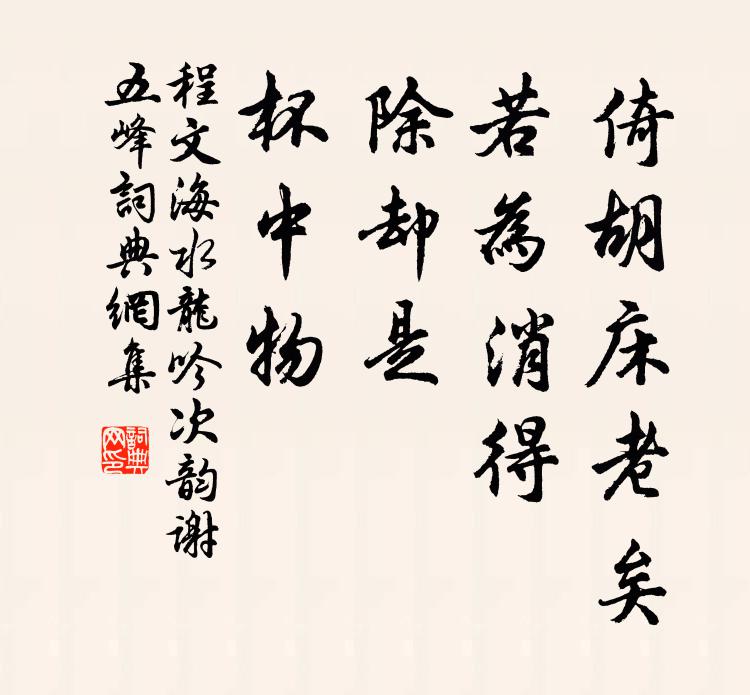 倚胡床老矣
若為消得
除却是
杯中物
程文海水龍吟次韵謝
五峰詞典網集
詞典
网印